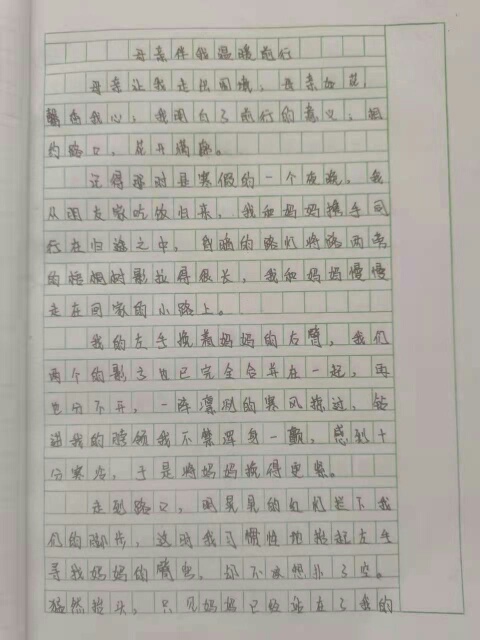 母亲伴我温暖前行
母亲让我走出困境，母亲如花，
馨香我心，我明白了前行的意义，相
约路口，花开满路。
记得那时是寒假的一个夜晚。我
从朋友家吃饭归来，我和妈妈携手同
行在归途之中，的路灯将路两旁
的梧桐树影拉得很长，我和妈妈慢慢
走在回家的小路上。
我的左手挽着妈妈的右臂，我们
两个的影子也已完全合并在一起，再
也分不开，一阵凛冽的寒风掠过，钻
进我的脖领我不禁浑身一颤，感到十
分寒冷，于是将妈妈挽得更紧。
走到路口，明晃晃的红灯拦下我
们的脚步，这时我习惯性地抬起左手
寻找妈妈的臂弯。却不承想扑了空。
猛然抬头，只见妈妈已经站在了我的